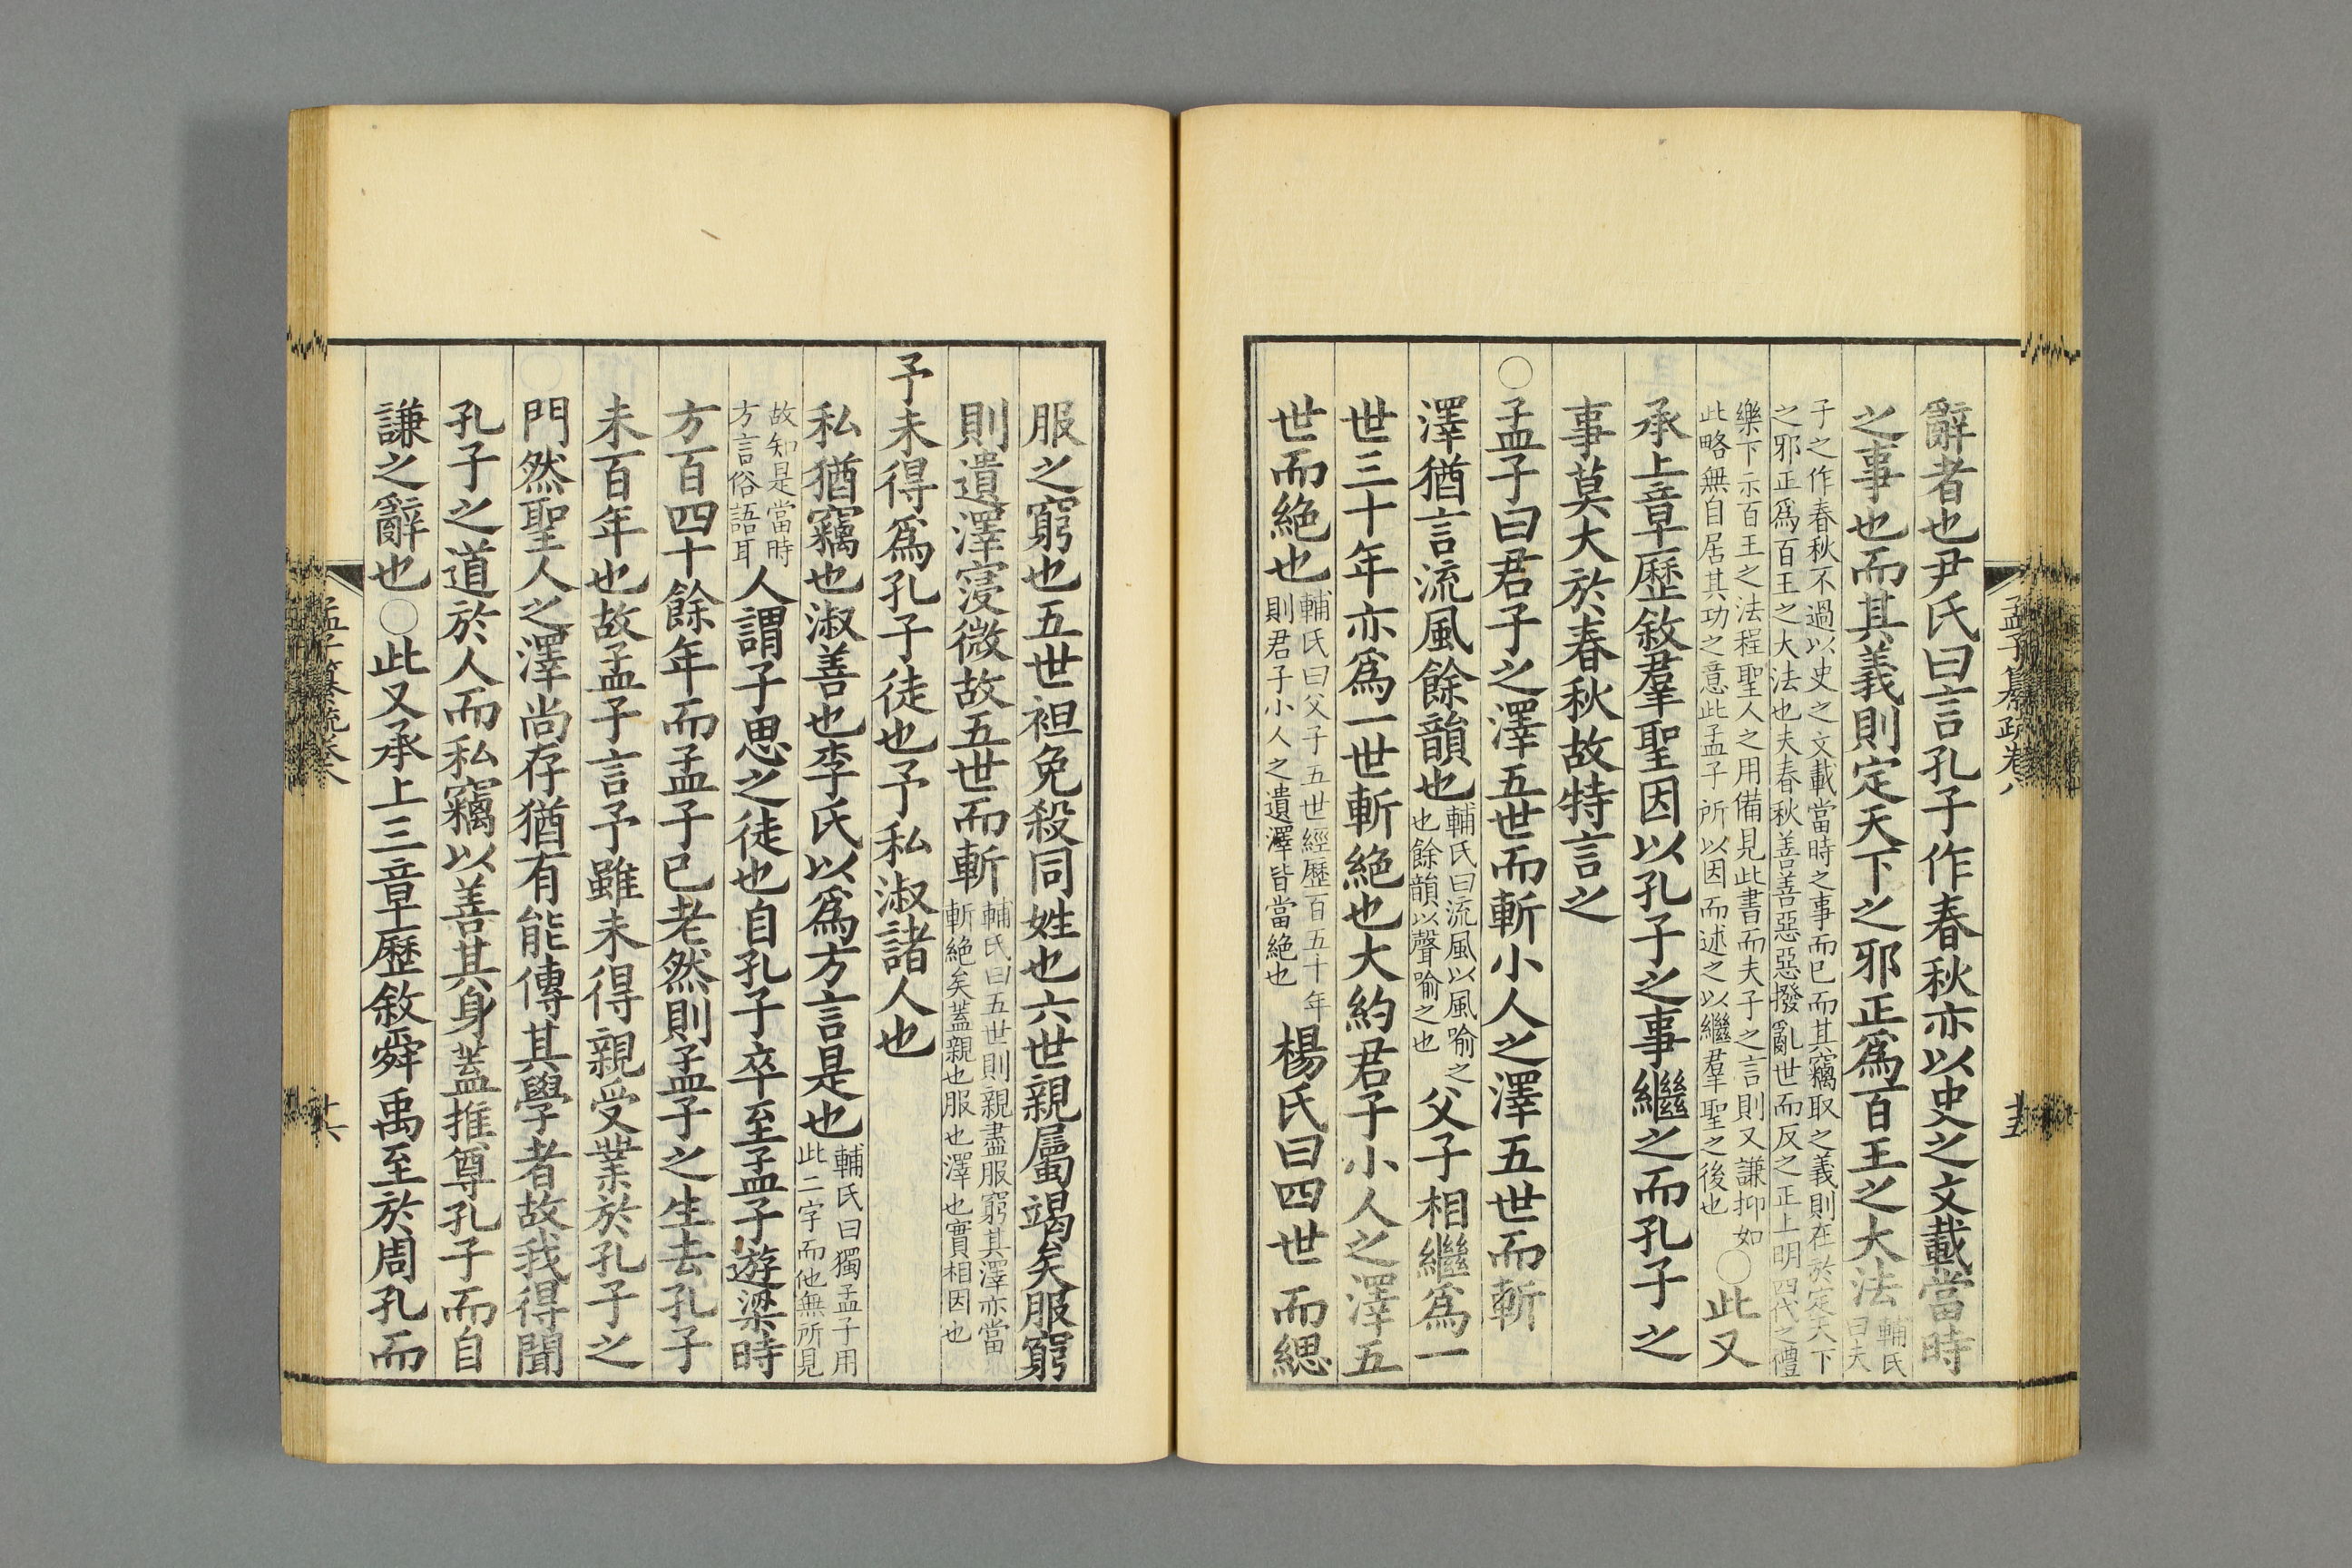 孟子纂疏卷八
十五
辭者也尹氏曰言孔子作春秋亦以史之文載當時
之事也而其義則定天下之邪正爲百王之大法輔氏曰夫
子之作春秋不過以史之文載當時之事而已而其竊取之義則在於定天下
之邪正爲百王之大法也夫春秋善善惡惡撥亂世而反之正上明四代之禮
樂下示百王之法程聖人之用備見此書而夫子之言則又謙抑如
此略無自居其功之意此孟子所以因而述之以繼羣聖之後也○此又
承上章歷敘羣聖因以孔子之事繼之而孔子之
事莫大於春秋故特言之
○孟子曰君子之澤五世而斬小人之澤五世而斬
澤猶言流風餘韻也輔氏曰流風以風喻之也餘韻以聲喻之也父子相繼爲一
世三十年亦爲一世斬絶也大約君子小人之澤五
世而絶也輔氏曰父子五世經歷百五十年則君子小人之遺澤皆當絶也楊氏曰四世而緦
服之窮也五世袒免殺同姓也六世親屬竭矣服窮
則遺澤寖微故五世而斬輔氏曰五世則親盡服窮其澤亦當斬絶矣蓋親也服也澤也實相因也
予未得爲孔子徒也予私淑諸人也
私猶竊也淑善也李氏以爲方言是也輔氏曰獨孟子用此二字而他無所見
故知是當時方言俗語耳人謂子思之徒也自孔子卒至孟子遊梁時
方百四十餘年而孟子已老然則孟子之生去孔子
未百年也故孟子言予雖未得親受業於孔子之
門然聖人之澤尚存猶有能傳其學者故我得聞
孔子之道於人而私竊以善其身蓋推尊孔子而自
謙之辭也○此又承上三章歷敘舜禹至於周孔而
孟子纂疏卷八
十六